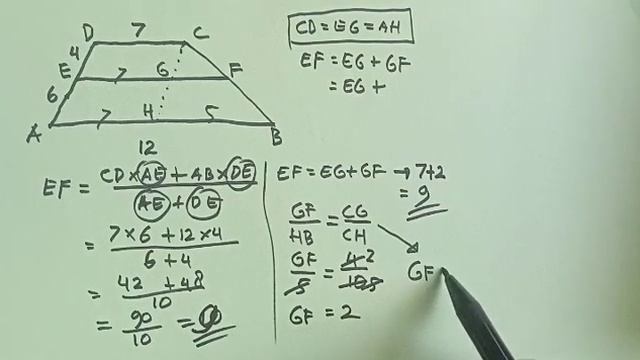 D 7 C
4
E 7 G F
6
A 7 H 5 B
12
CD = EG = AH
EF = EG + GF
= EG +
EF = CD × AE + AB × DE / AE + DE
= 7 × 6 + 12 × 4 / 6 + 4
= 42 + 48 / 10
= 90 / 10 = 9
EF = EG + GF → 7+2
= 9
GF / HB = CG / CH
GF / 5 = 4 2 / 10 5
GF = 2
GF